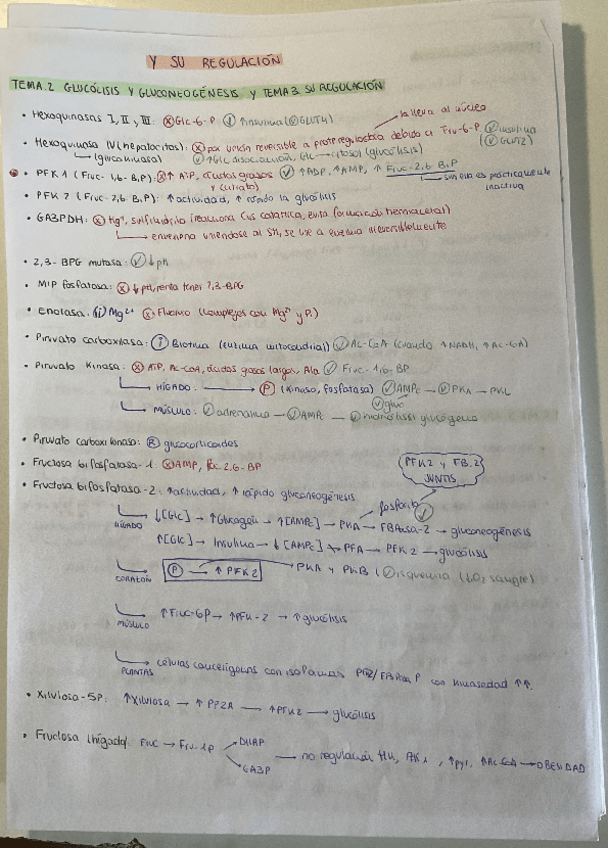 Y SU REGULACIÓN
TEMA.2 GLUCÓLISIS Y GLUCONEOGÉNESIS Y TEMA3 SU REGULACIÓN
• Hexoquinasas I, II, III: ⓧ Glc-6-P ✓ ↑insulina (✓GLUT4)
la lleva al núcleo
• Hexoquinasa IV (hepatocitos): ⓧ por unión reversible a prote reguladora debido a Fru-6-P. ✓ insulina
(glucokinasa) ✓ ↑Glc disociación, GK → citosol (glucólisis) (✓ GLUT2)
• PFK 1 (Fruc-1,6-BiP): ⓧ ↑ ATP, ácidos grasos ✓ ↑ADP, ↑AMP, ↑ Fruc-2,6 BiP
(y citrato) → sin ella es prácticamente inactiva
• PFK 2 (Fruc-2,6 BiP): ↑actividad, ↑ rápido la glucólisis
• GA3PDH: ⓧ Hg⁺,
→ envenena uniéndose al SH, se une a enzima irreversiblemente
• 2,3-BPG mutasa: ✓ ↓pH
• MIP fosfatasa: ⓧ ↓pH, evita tener 2,3-BPG
• Enolasa: ⓘ Mg²⁺ ⓧ Fluoruro (complejos con Mg²⁺ y Pi)
• Piruvato carboxilasa: ⓘ Biotina (enzima mitocondrial) ✓ Ac-CoA (cuando ↑NADH, ↑Ac-CoA)
• Piruvato Kinasa: ⓧ ATP, Ac-CoA, ácidos grasos largos, Ala ✓ Fruc-1,6-BP
→ HÍGADO: → Ⓟ (Kinasa, fosfatasa) ✓ AMPc → ✓ PKA → PKL
✓ gluc
→ MÚSCULO: ✓ adrenalina → ✓ AMPc → ✓ hidrólisis glucógeno
• Piruvato carboxikinasa: Ⓡ glucocorticoides
• Fructosa bifosfatasa-1: ⓧ AMP, Fruc-2,6-BP
PFK2 y FB.2 JUNTAS
• Fructosa bifosfatasa-2: ↑actividad, ↑ rápido gluconeogénesis
fosforila ✓
HÍGADO ↓[Glc] → ↑Glucagón → ↑[AMPc] → PKA → FBAasa-2 → gluconeogénesis
↑[Glc] → Insulina → ↓ [AMPc] → PFA → PFK2 → glucólisis
CORAZÓN Ⓟ → ↑ PFK2 PKA y PKB (✓ isquemia (↓O₂ sangre)
MÚSCULO ↑Fruc-6P → ↑PFK-2 → ↑glucólisis
PLANTAS células cancerígenas con isoformas PFK2/ con kinasedad ↑↑.
• Xilulosa-5P: ↑Xilulosa → ↑PP2A → ↑PFK2 → glucólisis
• Fructosa (hígado): Fruc → Fru-1P → DHAP
GA3P
→ no regulación HK, PFK1, ↑pyr, ↑Ac-CoA → OBESIDAD